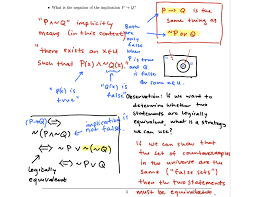 • What is the negation of the implication P → Q?
"P ∧ ~Q" implicitly
means (in this context)
"there exists an x∈U
such that P(x) ∧ ~Q(x)."
"P(x) is true"
"Q(x) is false"
P → Q is the
same thing as
~P ∨ Q
Both are
only
false
when
P is true
and Q
is false
for some x∈U.
(P→Q)
⟺
~(P ∧ ~Q)
implication is
not false
⟺ ~P ∨ ~(~Q)
⟺ ~P ∨ Q
logically
equivalent
Observation: if we want to
determine whether two
statements are logically
equivalent, what is a strategy
we can use?
if we can show that
the set of counterexamples
in the universe are the
same ("false sets")
then the two statements
must be equivalent.